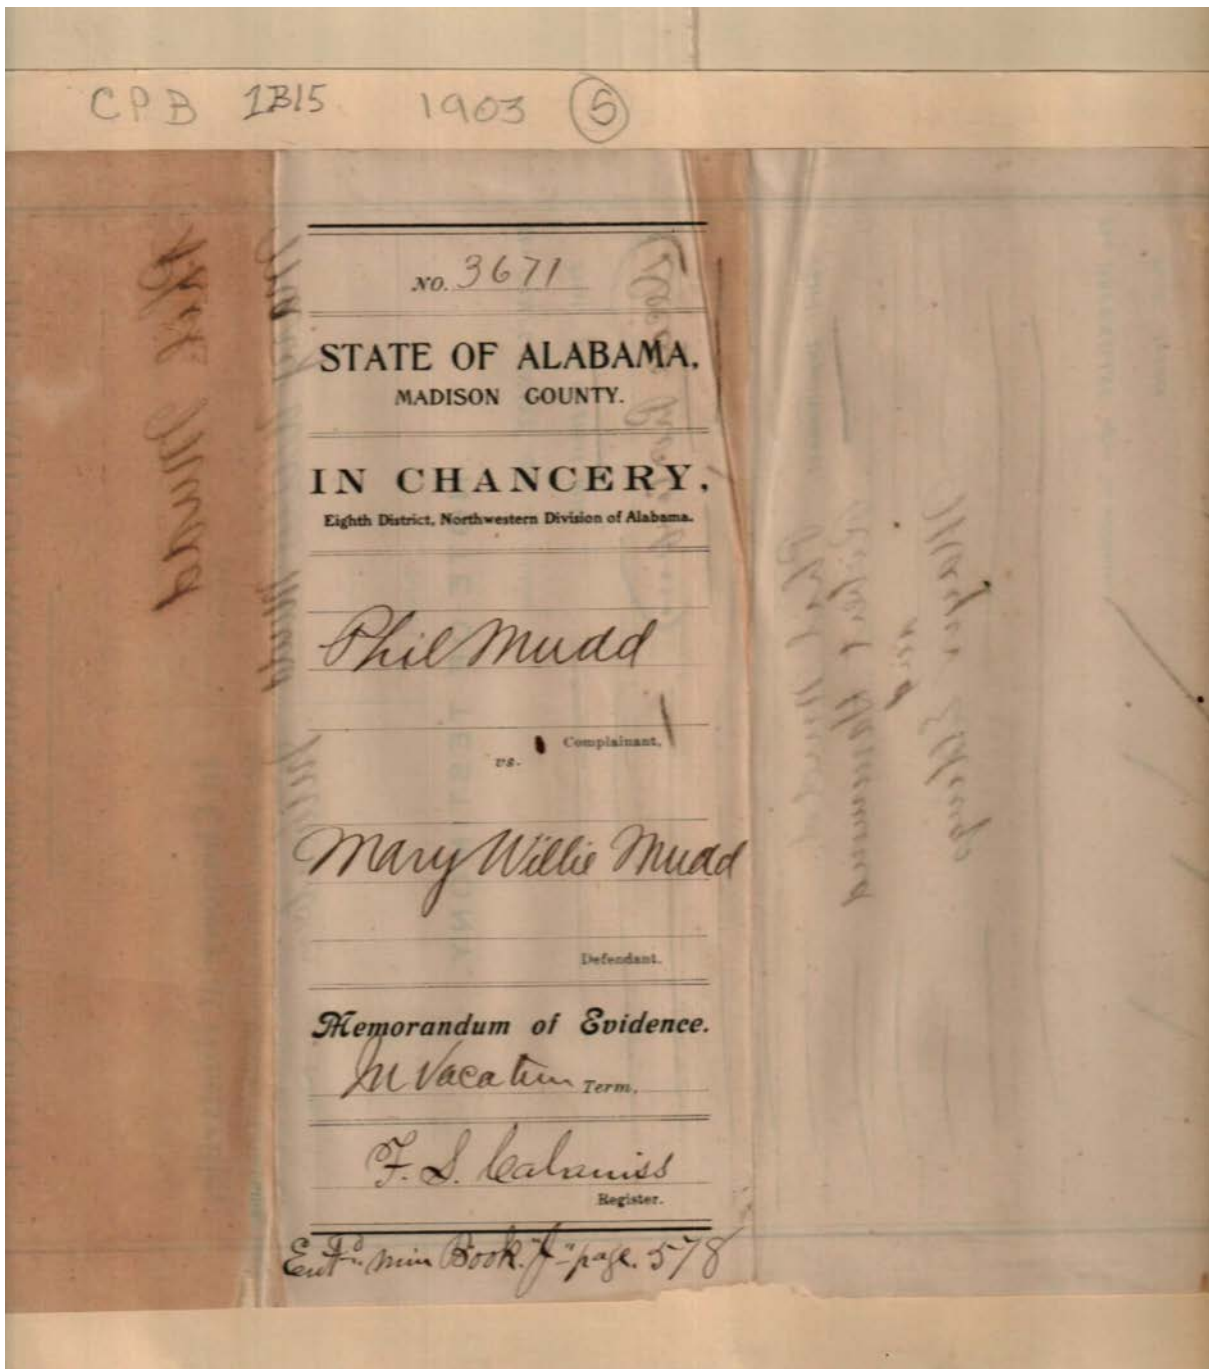 CPB 1B15 1903 5
NO. 3671
STATE OF ALABAMA,
MADISON COUNTY.
IN CHANCERY,
Eighth District, Northwestern Division of Alabama.
Phil Mudd
Complainant,
vs.
Mary Willie Mudd
Defendant.
Memorandum of Evidence.
In Vacation Term.
F. S. Cabaniss
Register.
Entd. Min Book "J" page. 578